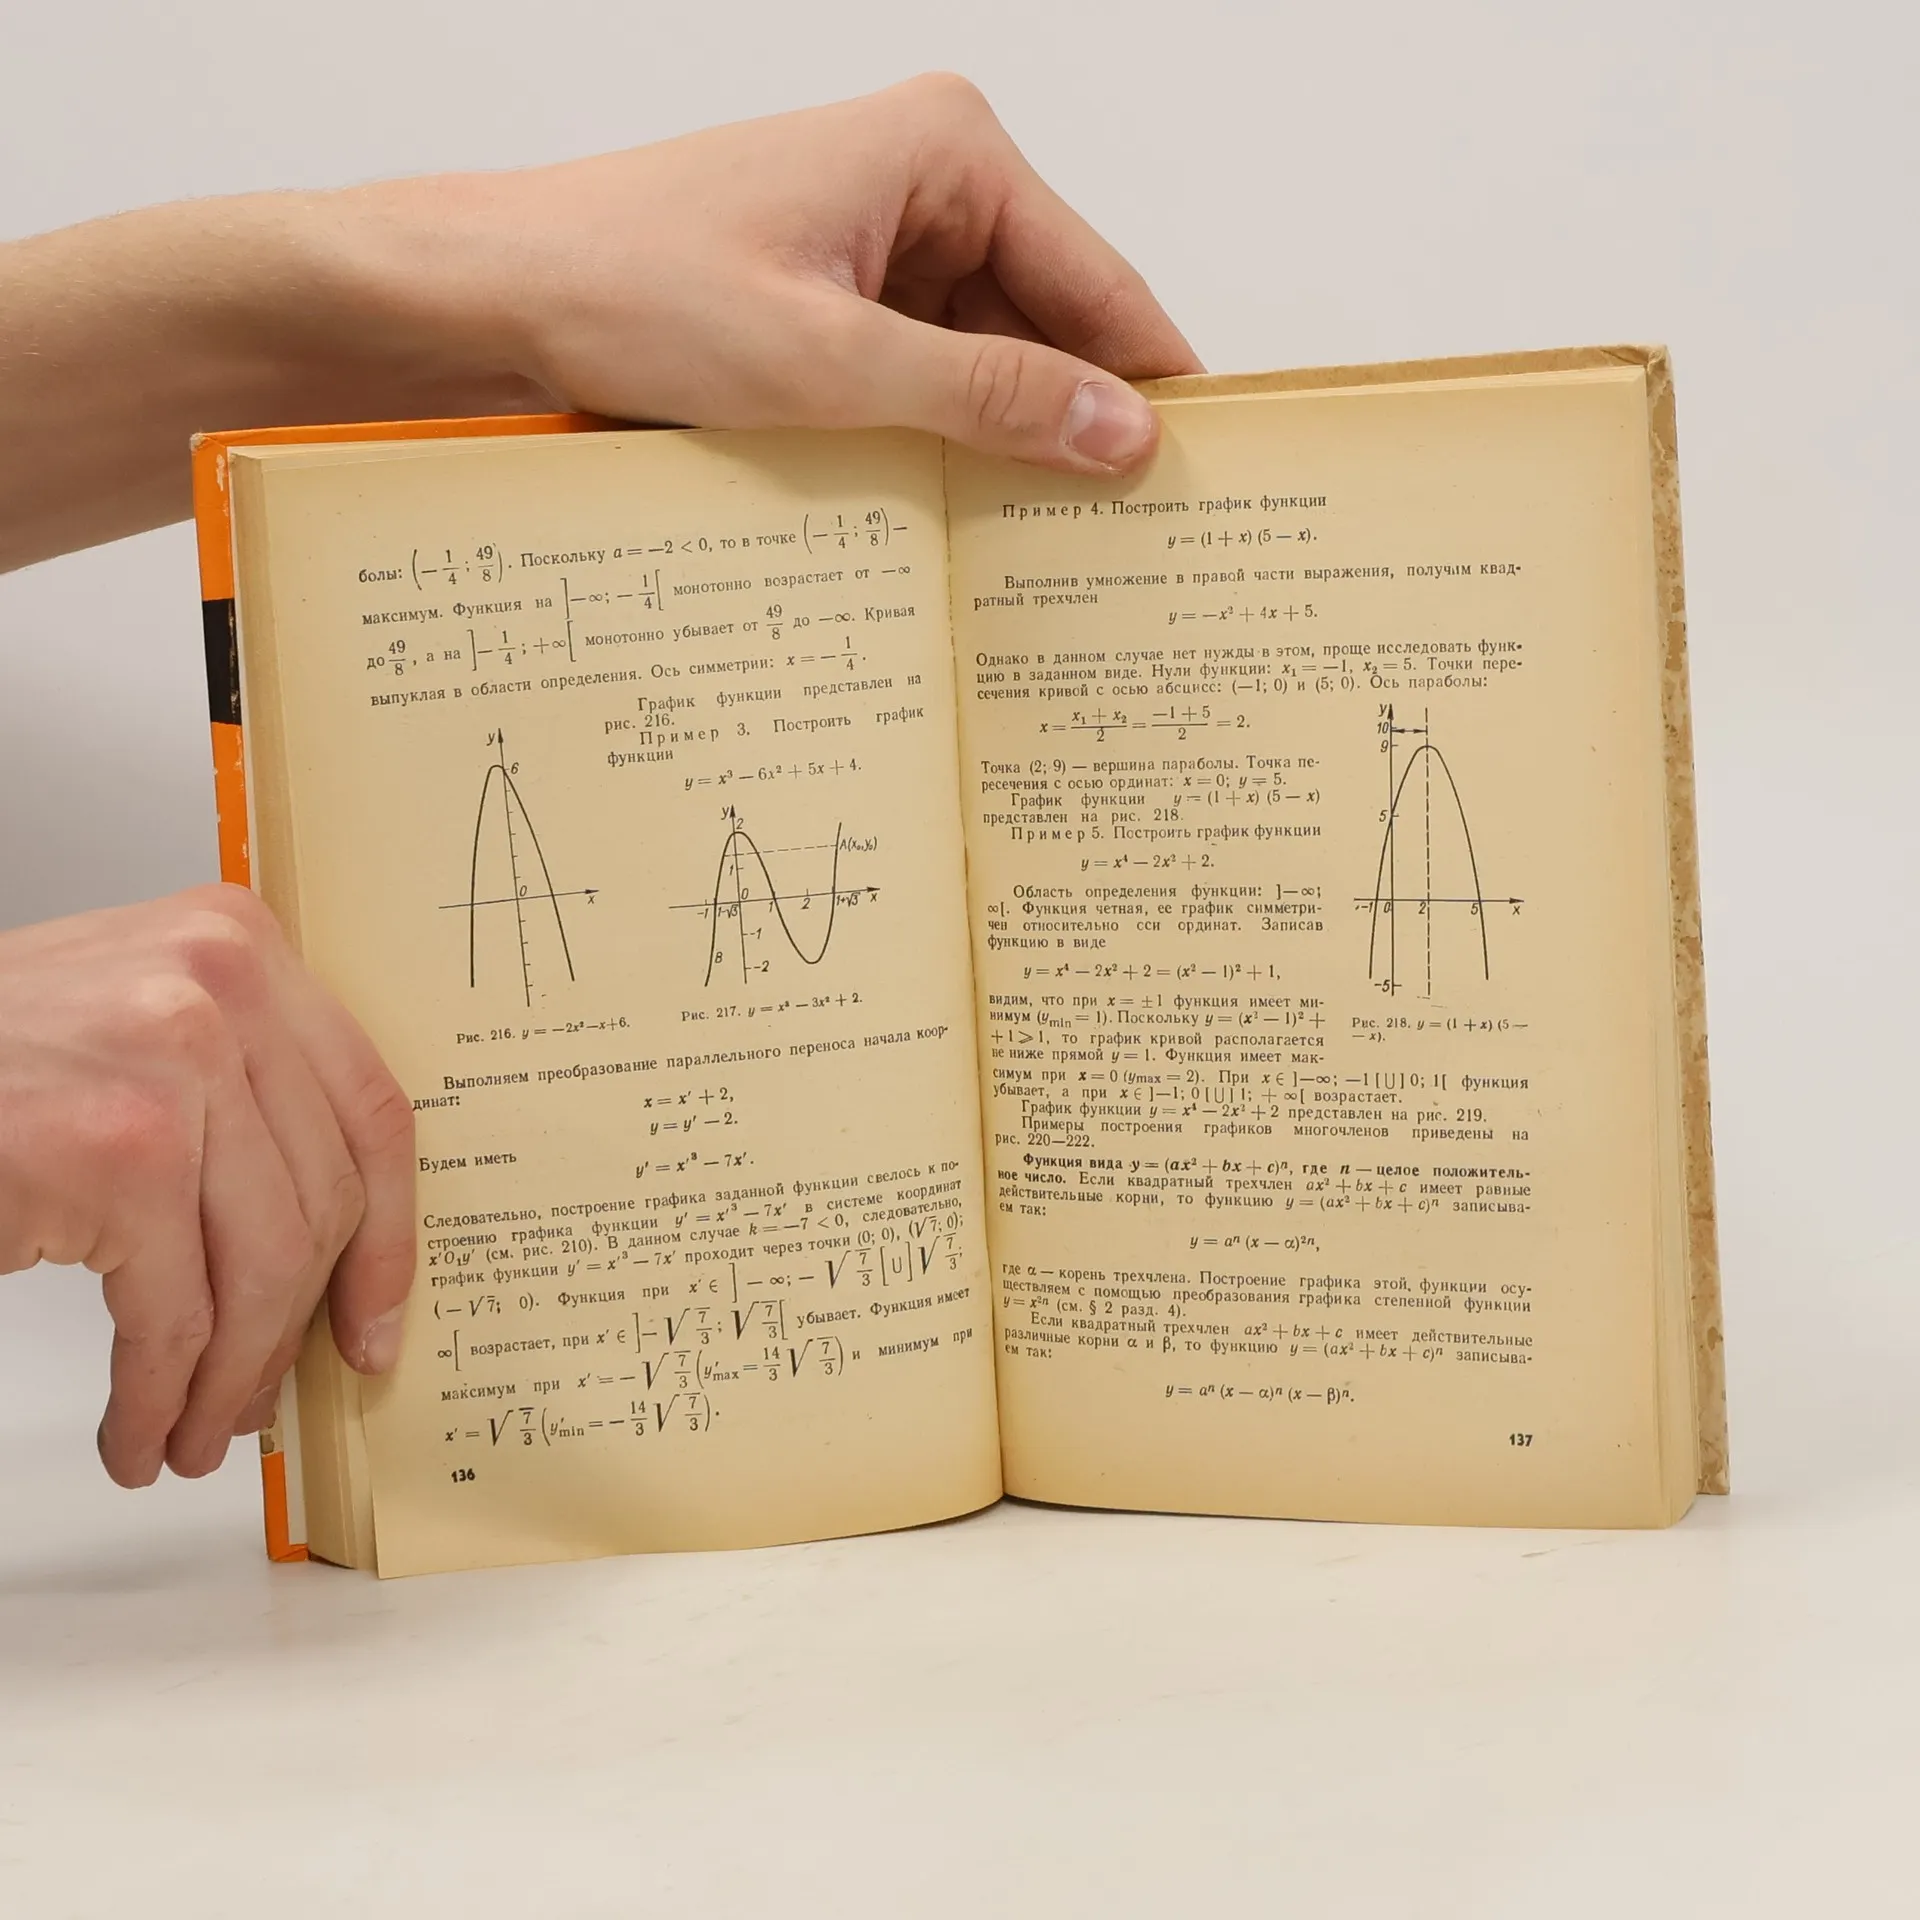 болы: (−1/4; 49/8). Поскольку a = −2 < 0, то в точке (−1/4; 49/8) —
максимум. Функция на ]−∞; −1/4[ монотонно возрастает от −∞
до 49/8, а на ]−1/4; +∞[ монотонно убывает от 49/8 до −∞. Кривая
выпуклая в области определения. Ось симметрии: x = −1/4.
График функции представлен на
рис. 216.
Пример 3. Построить график
функции
y = x³ − 6x² + 5x + 4.
y
6
0
x
Рис. 216. y = −2x²−x+6.
y
2
A(x₀,y₀)
1
0
−1
1−√3
1
2
1+√3
x
−1
B
−2
Рис. 217. y = x³ − 3x² + 2.
Выполняем преобразование параллельного переноса начала коор-
динат:
x = x′ + 2,
y = y′ − 2.
Будем иметь
y′ = x′³ − 7x′.
Следовательно, построение графика заданной функции свелось к по-
строению графика функции y′ = x′³ − 7x′ в системе координат
x′O₁y′ (см. рис. 210). В данном случае k = −7 < 0, следовательно,
график функции y′ = x′³ − 7x′ проходит через точки (0; 0), (√7; 0);
(−√7; 0). Функция при x′ ∈ ]−∞; −√7/3[∪]√7/3;
∞[ возрастает, при x′ ∈ ]−√7/3; √7/3[ убывает. Функция имеет
максимум при x′ = −√7/3 (y′max = 14/3 √7/3) и минимум при
x′ = √7/3 (y′min = −14/3 √7/3).
136
Пример 4. Построить график функции
y = (1 + x) (5 − x).
Выполнив умножение в правой части выражения, получим квад-
ратный трехчлен
y = −x² + 4x + 5.
Однако в данном случае нет нужды в этом, проще исследовать функ-
цию в заданном виде. Нули функции: x₁ = −1, x₂ = 5. Точки пере-
сечения кривой с осью абсцисс: (−1; 0) и (5; 0). Ось параболы:
x = (x₁ + x₂)/2 = (−1 + 5)/2 = 2.
Точка (2; 9) — вершина параболы. Точка пе-
ресечения с осью ординат: x = 0; y = 5.
График функции y = (1 + x) (5 − x)
представлен на рис. 218.
Пример 5. Построить график функции
y = x⁴ − 2x² + 2.
Область определения функции: ]−∞;
∞[. Функция четная, ее график симметри-
чен относительно оси ординат. Записав
функцию в виде
y = x⁴ − 2x² + 2 = (x² − 1)² + 1,
видим, что при x = ±1 функция имеет ми-
нимум (ymin = 1). Поскольку y = (x² − 1)² +
+ 1 ⩾ 1, то график кривой располагается
не ниже прямой y = 1. Функция имеет мак-
y
10
9
5
−1
0
2
5
x
−5
Рис. 218. y = (1 + x) (5 —
— x).
симум при x = 0 (ymax = 2). При x ∈ ]−∞; −1[∪]0; 1[ функция
убывает, а при x ∈ ]−1; 0[∪]1; +∞[ возрастает.
График функции y = x⁴ − 2x² + 2 представлен на рис. 219.
Примеры построения графиков многочленов приведены на
рис. 220—222.
Функция вида y = (ax² + bx + c)ⁿ, где n — целое положитель-
ное число. Если квадратный трехчлен ax² + bx + c имеет равные
действительные корни, то функцию y = (ax² + bx + c)ⁿ записыва-
ем так:
y = aⁿ (x − α)²ⁿ,
где α — корень трехчлена. Построение графика этой, функции осу-
ществляем с помощью преобразования графика степенной функции
y = x²ⁿ (см. § 2 разд. 4).
Если квадратный трехчлен ax² + bx + c имеет действительные
различные корни α и β, то функцию y = (ax² + bx + c)ⁿ записыва-
ем так:
y = aⁿ (x − α)ⁿ (x − β)ⁿ.
137